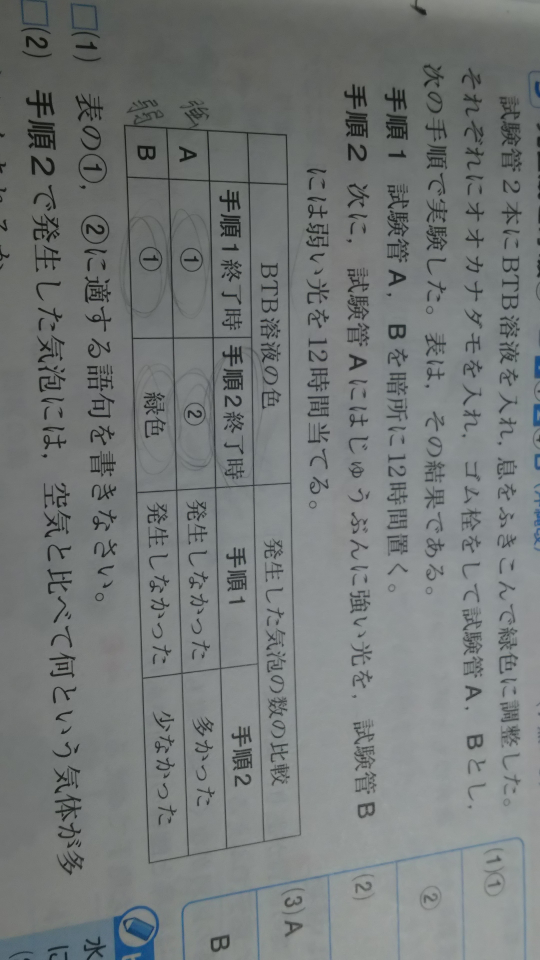 試験管2本にBTB溶液を入れ,息をふきこんで緑色に調整した。
それぞれにオオカナダモを入れ,ゴム栓をして試験管A,Bとし,
次の手順で実験した。表は,その結果である。
手順1 試験管A,Bを暗所に12時間置く。
手順2 次に,試験管Aにはじゅうぶんに強い光を,試験管B
には弱い光を12時間当てる。
BTB溶液の色 発生した気泡の数の比較
手順1終了時 手順2終了時 手順1 手順2
強 A ① ② 発生しなかった 多かった
弱 B ① 緑色 発生しなかった 少なかった
□(1) 表の①,②に適する語句を書きなさい。
□(2) 手順2で発生した気泡には,空気と比べて何という気体が多
(1)①
②
(2)
(3)A
B
水
に